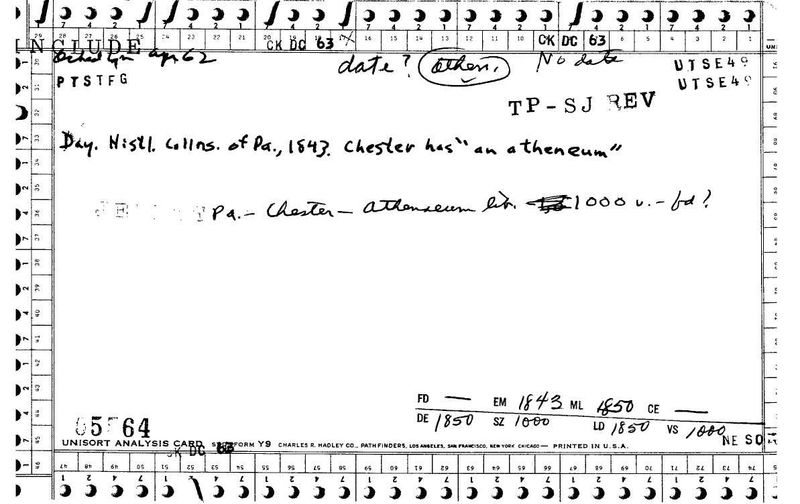 INCLUDE
CK DC 63
CK DC 63
apr 62
date? athen. No date
UTSE49
PTSTFG
UTSE49
TP-SJ REV
Day. Histl. Collns. of Pa., 1843. Chester has "an atheneum"
Pa. - Chester - Athenaeum lib. 1000 v. - fd?
FD — EM 1843 ML 1850 CE —
DE 1850 SZ 1000 LD 1850 VS 1000
NE SO
64
UNISORT ANALYSIS CARD FORM Y9 CHARLES R. HADLEY CO., PATHFINDERS, LOS ANGELES, SAN FRANCISCO, NEW YORK CHICAGO — PRINTED IN U.S.A.
CK DC 63